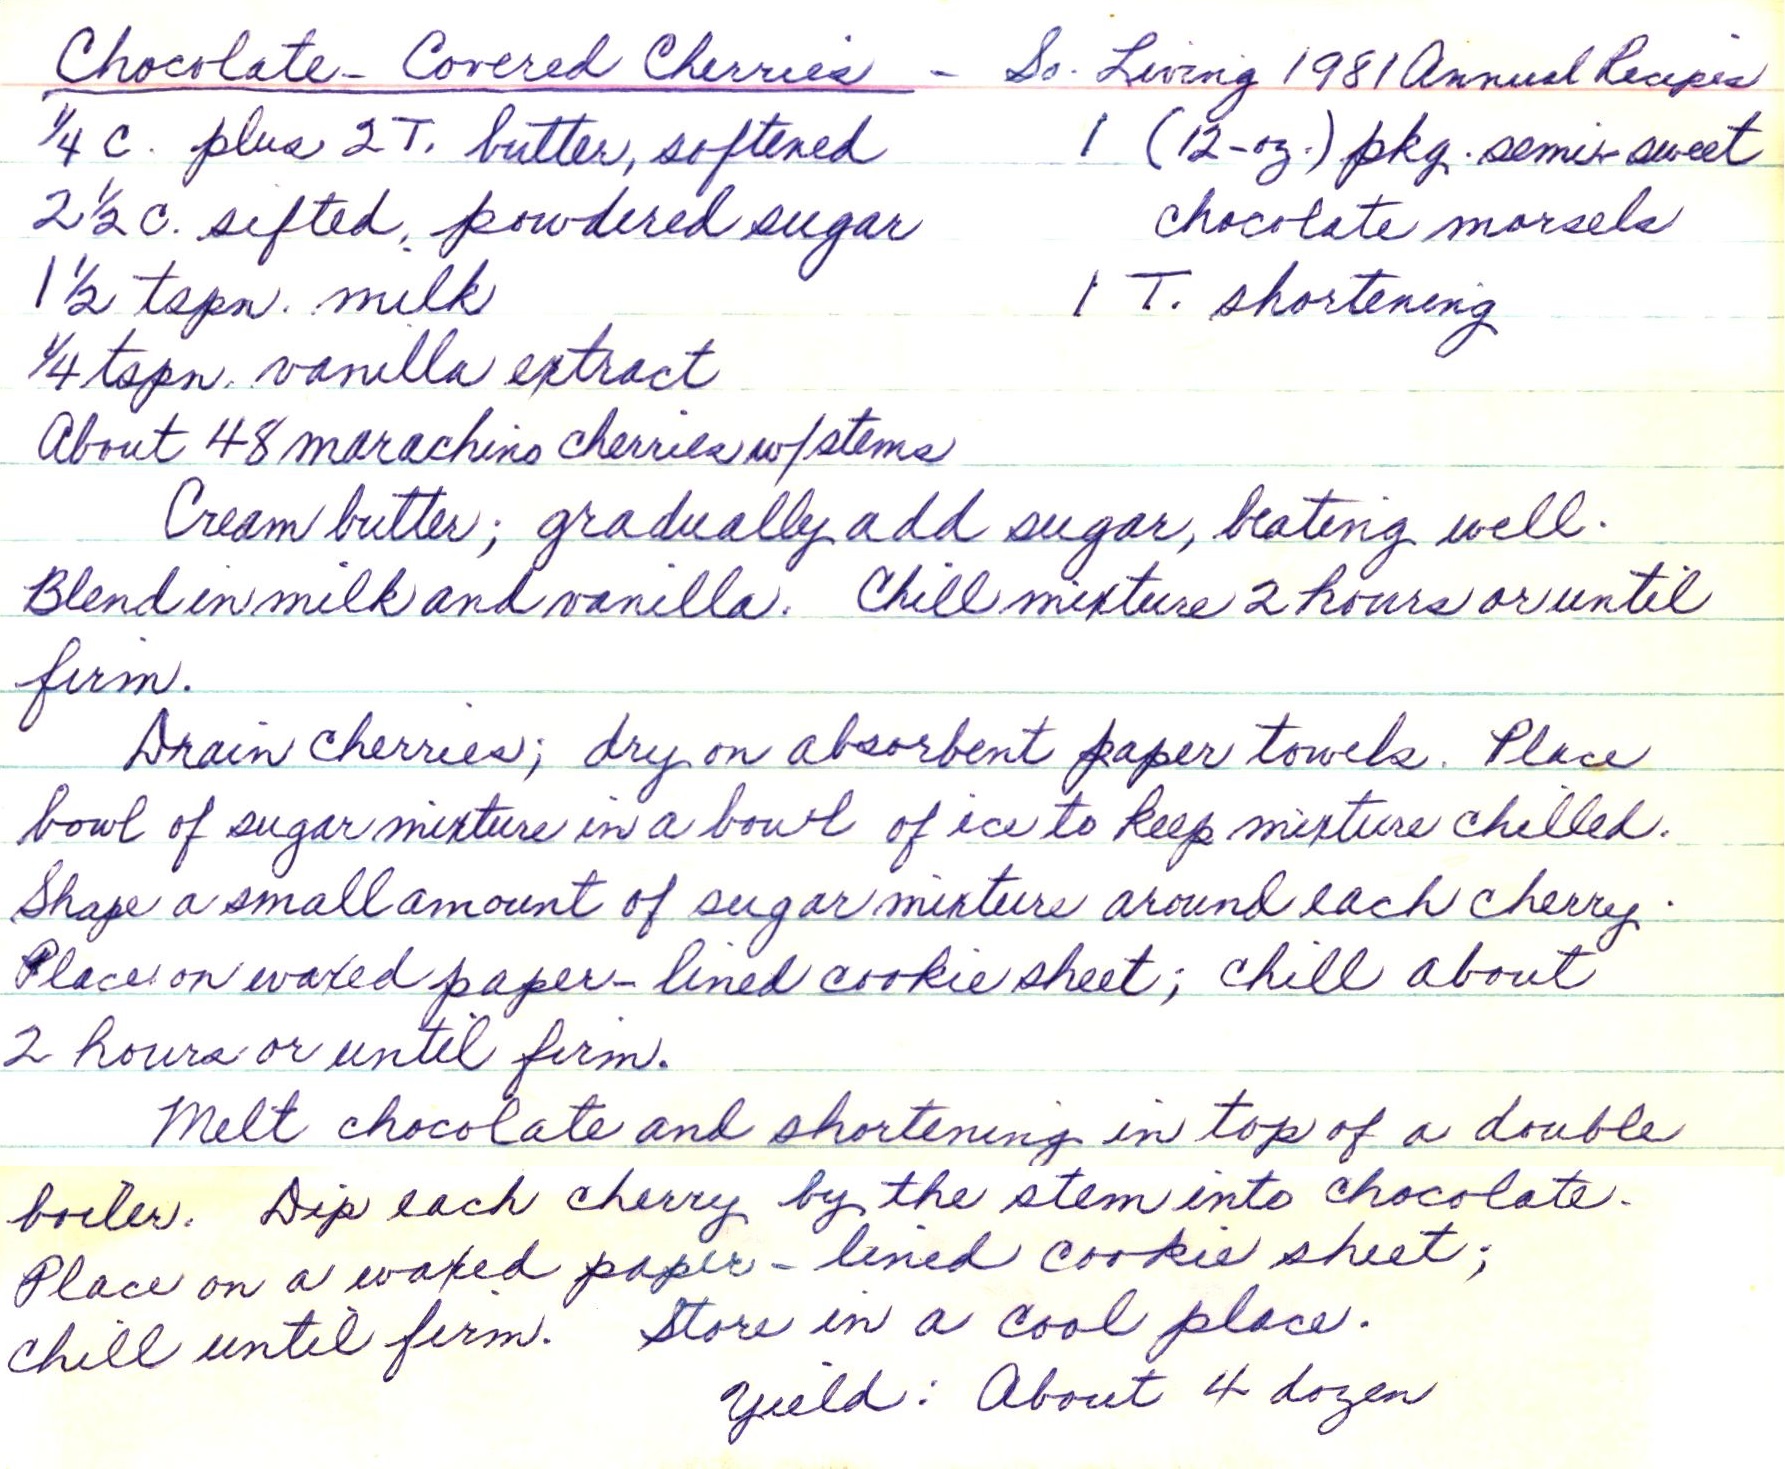 Chocolate-Covered Cherries - So. Living 1981 Annual Recipes
1/4 c. plus 2 T. butter, softened
2 1/2 c. sifted, powdered sugar
1 1/2 tspn. milk
1/4 tspn. vanilla extract
About 48 marachino cherries w/stems
1 (12-oz.) pkg. semi-sweet
chocolate morsels
1 T. shortening
Cream butter; gradually add sugar, beating well.
Blend in milk and vanilla. Chill mixture 2 hours or until
firm.
Drain cherries; dry on absorbent paper towels. Place
bowl of sugar mixture in a bowl of ice to keep mixture chilled.
Shape a small amount of sugar mixture around each cherry.
Place on waxed paper-lined cookie sheet; chill about
2 hours or until firm.
Melt chocolate and shortening in top of a double
boiler. Dip each cherry by the stem into chocolate.
Place on a waxed paper-lined cookie sheet;
chill until firm. Store in a cool place.
Yield: About 4 dozen